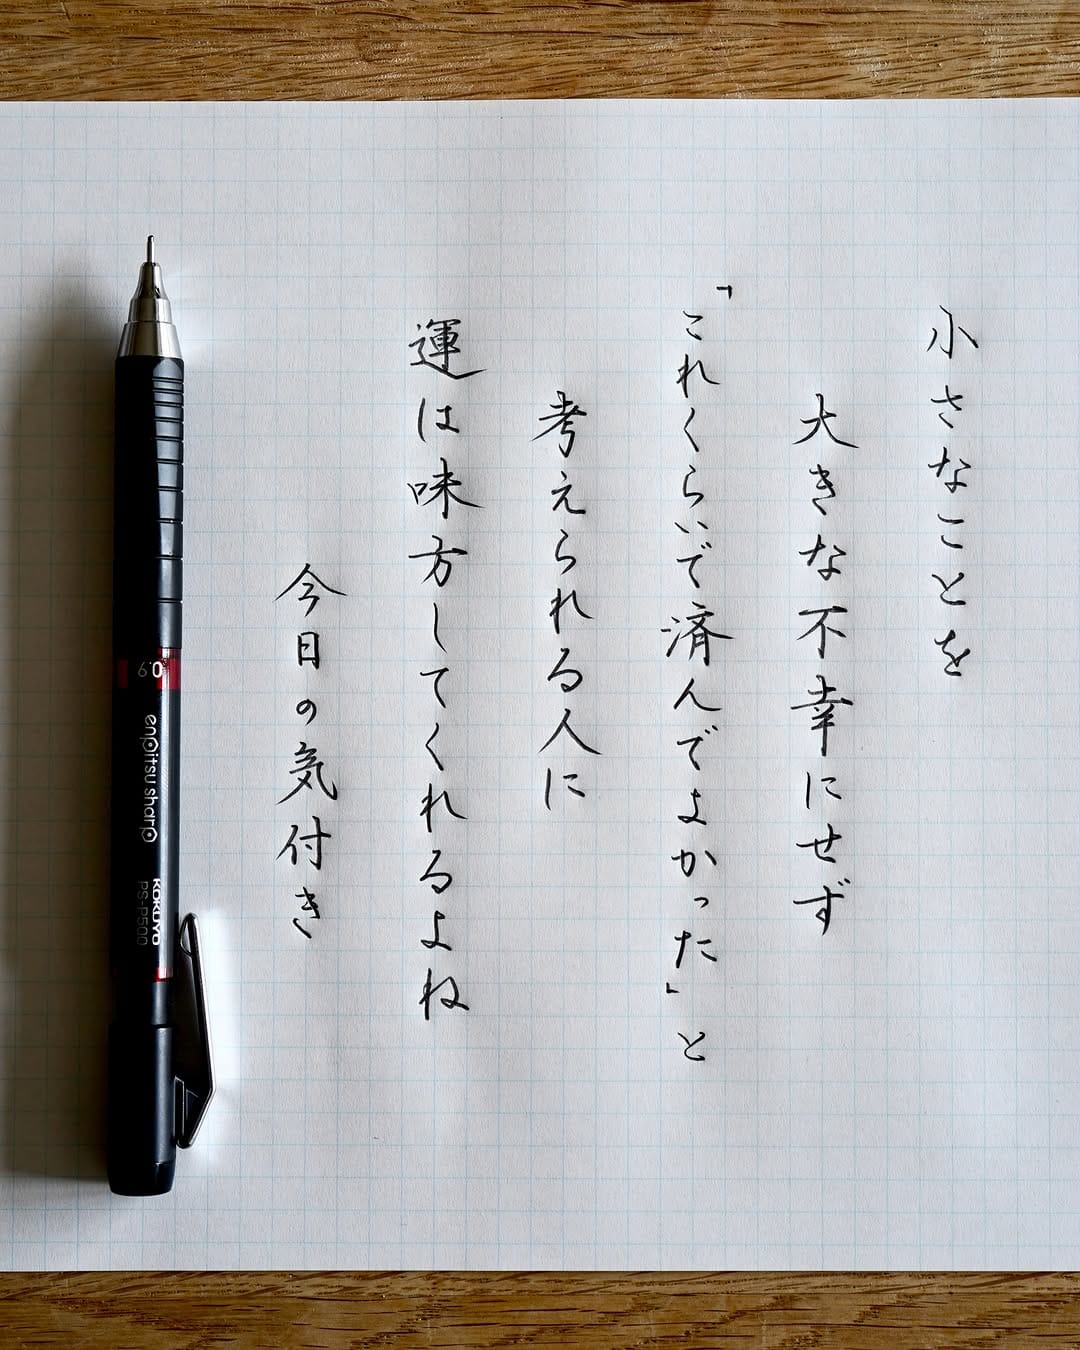 小さなことを
大きな不幸にせず
「これくらいで済んでよかった」と
考えられる人に
運は味方してくれるよね
今日の気付き
0.9
enpitsu sharp
KOKUYO
PS-P500